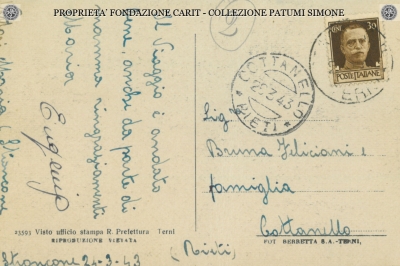 PROPRIETA' FONDAZIONE CARIT - COLLEZIONE PATUMI SIMONE
Il viaggio è andato
bene, anche da parte di
mamma ringraziamenti
Maria
Eugenia
COTTANELLO
28.3.43
* RIETI *
CENT 30
POSTE ITALIANE
Sig.
Bruna Feliciani e
famiglia
Cottanello
(Rieti)
FOT BERBETTA S.A. - TERNI.
25593 Visto ufficio stampa R. Prefettura Terni
RIPRODUZIONE VIETATA
Stroncone 24-3-43